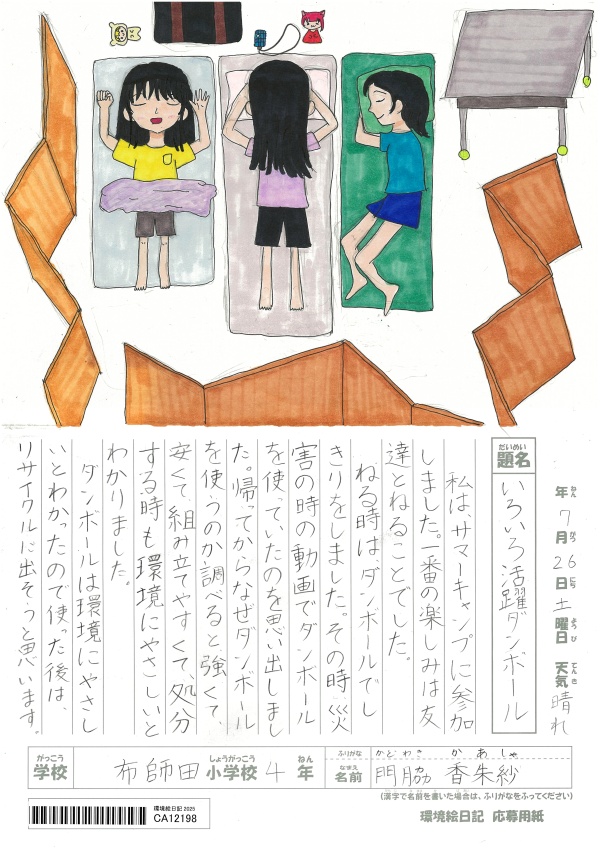 年 7月26日 土曜日 天気 晴れ
ねん がつ にち ようび てんき
だいめい
題名
いろいろ活躍ダンボール
私は、サマーキャンプに参加
しました。一番の楽しみは友
達とねることでした。
ねる時はダンボールでし
きりをしました。その時、災
害の時の動画でダンボール
を使っていたのを思い出しまし
た。帰ってからなぜダンボール
を使うのか調べると、強くて、
安くて、組み立てやすくて、処分
する時も環境にやさしいと
わかりました。
ダンボールは環境にやさし
いとわかったので使った後は、
リサイクルに出そうと思います。
がっこう しょうがっこう ねん
学校 布師田 小学校 4 年
ふりがな かどわき かあしゃ
なまえ
名前 門脇 香朱紗
(漢字で名前を書いた場合は、ふりがなをふってください)
環境絵日記 応募用紙
環境絵日記 2025
CA12198